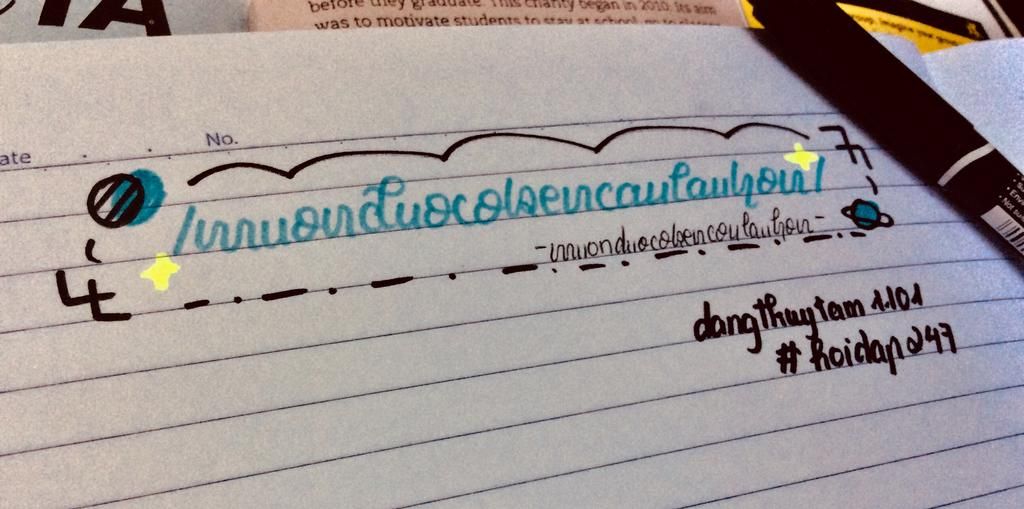 TA
before they graduate. This charity began in 2010. Its aim
was to motivate students to stay at school, go to
group. Imagine your group
ate
No.
/muonduocobencaulauhon/
-muonduocobencaulauhon-
dangthuytam1101
#hoidap247